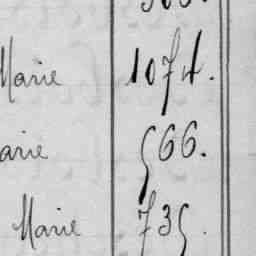 Marie 1074.
arie 566.
Marie 735.